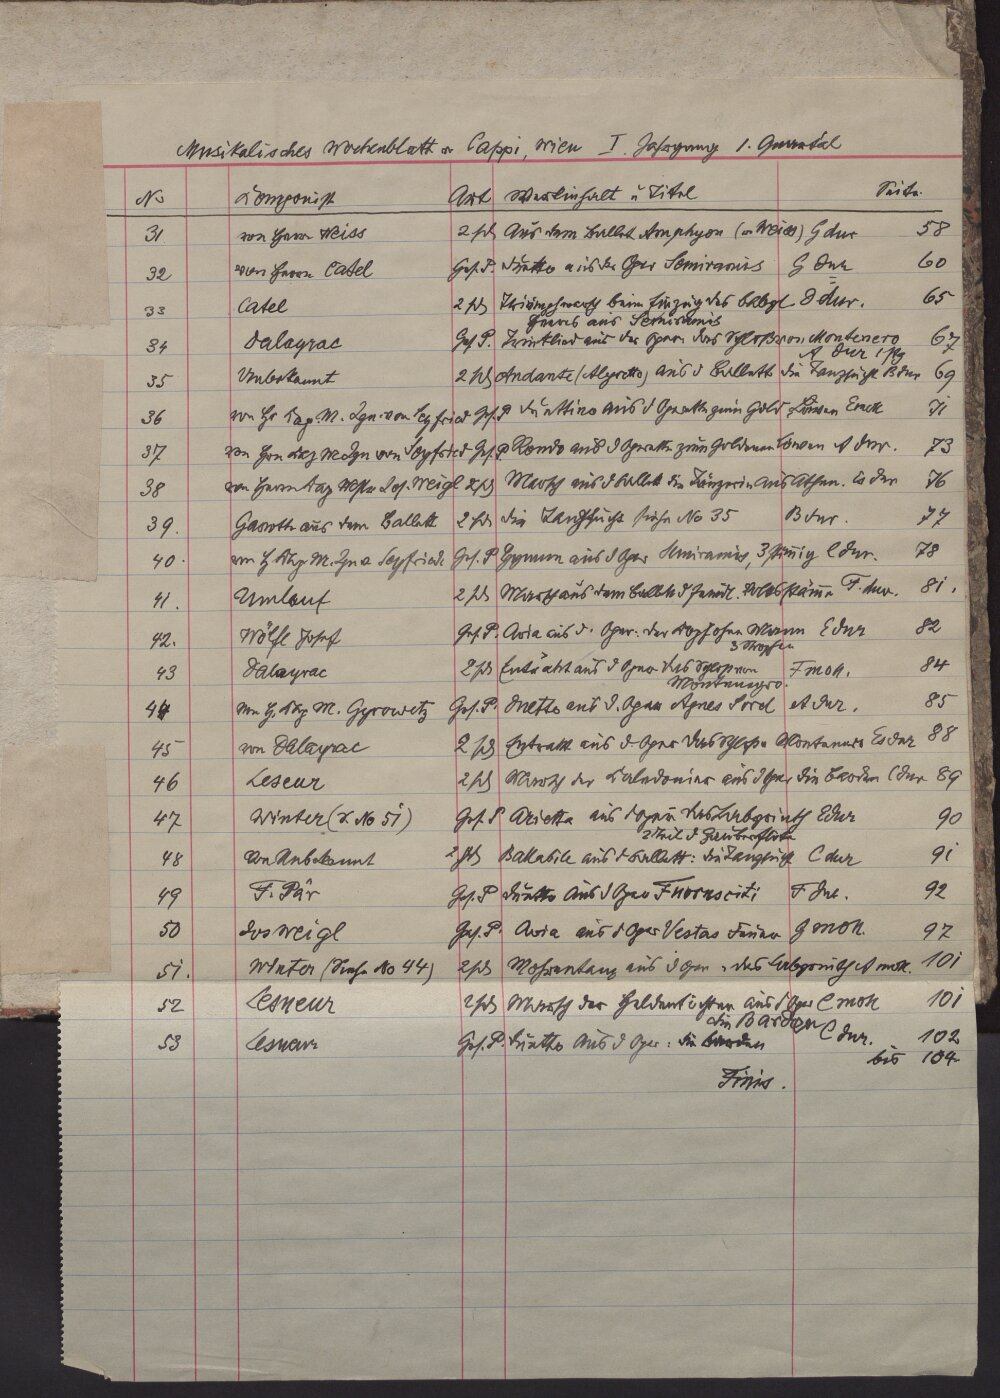 Musikalisches Wochenblatt v Cappi, Wien I. Jahrgang 1. Quartal
No Komponist Art Werkinhalt u Titel Seite
31 von Herrn Weiss 2 hd Aus dem Ballet Amphyon (v Weiss) G dur 58
32 von Herrn Catel Ges. P. Duetto aus der Oper Semiramis G dur 60
33 Catel 2 hd Triumphmarsch beim Einzug des D dur. 65
Heeres aus Semiramis
34 Dalayrac Ges P. Trinklied aus der Oper: das Schloss von Montenero 67
A dur
35 Unbekannt 2 hd Andante (Alegretto) aus d Ballett die Tanzsucht B dur 69
36 von Hr Kap. M. Ign. von Seyfried Ges. P Duettino aus d Operette zum Gold. Löwen 71
37 von Hrn Kap M Ign von Seyfried Ges. P Rondo aus d Operette zum Goldenen Löwen A dur. 73
38 von Herrn Kap Mstr Jos. Weigl 2 hd Marsch aus d Ballett die Tänzerin aus Athen. Es dur 76
39. Gavotte aus dem Ballett 2 hd die Tanzsucht siehe No 35 B dur. 77
40. von H Kap M. Ign v Seyfried Ges. P Hymnus aus d Oper Semiramis, 3 stimig C dur. 78
41. Umlauf 2 hd Marsch aus dem Ballett d F. dur. 81.
42. Wölfl Josef Ges. P. Aria aus d. Oper: der Kopf ohne Mann E dur 82
3 Strophen
43 Dalayrac 2 hd Enträckt aus d Oper das Schloss von F moll. 84
Montenegro.
44 von H. Kap M. Gyrowetz Ges. P. Duetto aus d. Oper Agnes Sorel A dur. 85
45 von Dalayrac 2 hd Entrakt aus d Oper das Schloss Montenero Es dur 88
46 Leseur 2 hd Marsch der Kaledonier aus d Oper die Barden C dur 89
47 Winter (s. No 51) Ges. P Arietta aus d Oper das Labyrinth E dur 90
2 Teil d Zauberflöte
48 von Unbekannt 2 hd Ballabile aus d Ballett: die Tanzsucht C dur 91
49 F. Pär Ges. P Duetto aus d Oper Fuorusciti F dur. 92
50 Jos Weigl Ges. P. Aria aus d Oper Vestas Feuer G moll. 97
51. Winter (Siehe No 44) 2 hd Mohrentanz aus d Oper: das Labyrinth A moll. 101
52 Lesueur 2 hd Marsch der aus d Oper C moll 101
die Barden
53 Lesueur Ges. P. Duetto aus d Oper: die Barden C dur. 102
bis 104
Finis.